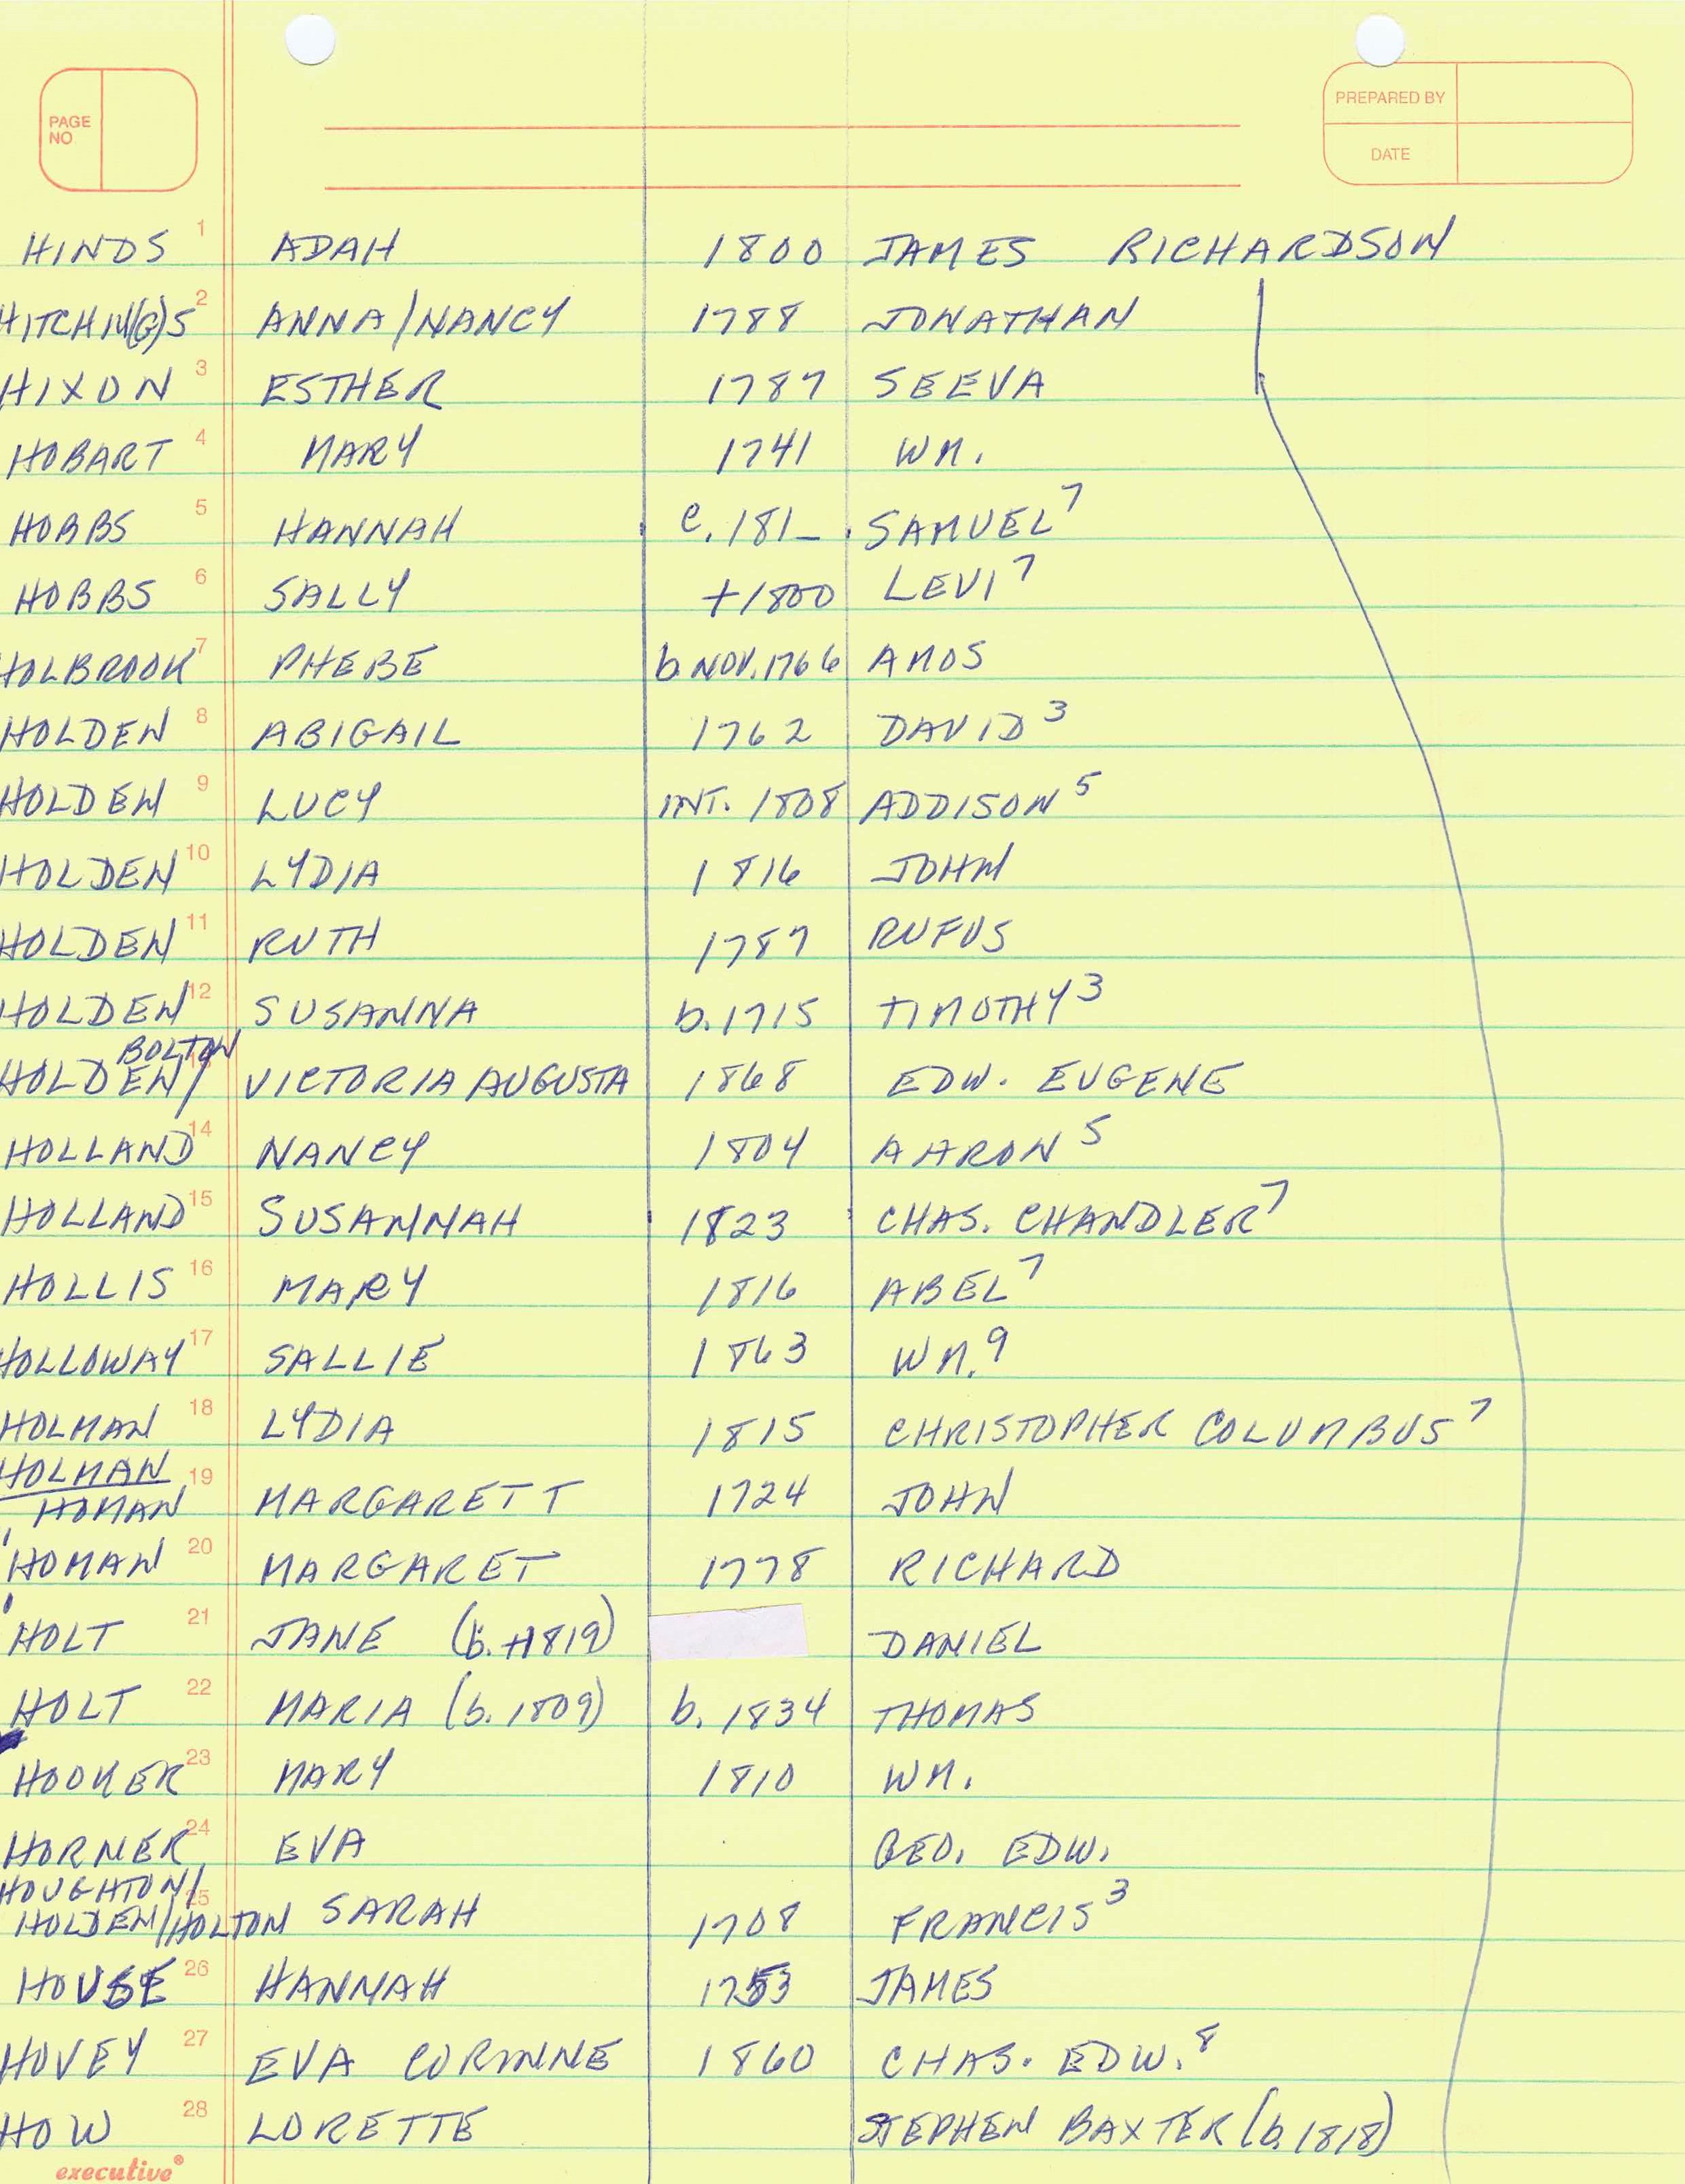 PAGE NO
PREPARED BY
DATE
HINDS 1 ADAH 1800 JAMES RICHARDSON
HITCHIN(G)S 2 ANNA/NANCY 1788 JONATHAN
HIXON 3 ESTHER 1787 SEEVA
HOBART 4 MARY 1741 WM.
HOBBS 5 HANNAH c. 181_ SAMUEL 7
HOBBS 6 SALLY +1800 LEVI 7
HOLBROOK 7 PHEBE b. NOV. 1766 AMOS
HOLDEN 8 ABIGAIL 1762 DAVID 3
HOLDEN 9 LUCY INT. 1808 ADDISON 5
HOLDEN 10 LYDIA 1816 JOHN
HOLDEN 11 RUTH 1787 RUFUS
HOLDEN 12 SUSANNA b. 1715 TIMOTHY 3
BOLTON
HOLDEN/ 13 VICTORIA AUGUSTA 1868 EDW. EUGENE
HOLLAND 14 NANCY 1804 AARON 5
HOLLAND 15 SUSANNAH 1823 CHAS. CHANDLER 7
HOLLIS 16 MARY 1816 ABEL 7
HOLLOWAY 17 SALLIE 1863 WM. 9
HOLMAN 18 LYDIA 1815 CHRISTOPHER COLUMBUS 7
HOLMAN
HOMAN 19 MARGARETT 1724 JOHN
HOMAN 20 MARGARET 1778 RICHARD
HOLT 21 JANE (b. +1819) DANIEL
HOLT 22 MARIA (b. 1809) b. 1834 THOMAS
HOOKER 23 MARY 1810 WM.
HORNER 24 EVA GEO. EDW.
HOUGHTON/
HOLDEN/HOLTON 25 SARAH 1708 FRANCIS 3
HOUSE 26 HANNAH 1753 JAMES
HOVEY 27 EVA CORINNE 1860 CHAS. EDW. 8
HOW 28 LORETTE STEPHEN BAXTER (b. 1818)
executive®